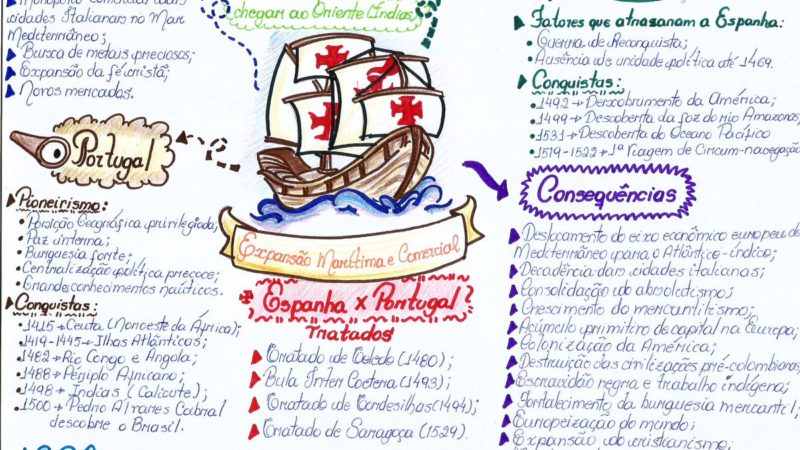 Monopólio comercial das
cidades Italianas no Mar
Mediterrâneo;
Busca de metais preciosos;
Expansão da fé cristã;
Novos mercados.
chegar ao Oriente (Índias)
Portugal
Pioneirismo:
Posição Geográfica privilegiada;
Paz interna;
Burguesia forte;
Centralização política precoce;
Grandes conhecimentos naúticos.
Conquistas:
1415→Ceuta (Noroeste da África);
1419-1445→Ilhas Atlânticas;
1482→Rio Congo e Angola;
1488→Périplo Africano;
1498→Índias (Calicute);
1500→Pedro Álvares Cabral
descobre o Brasil.
Expansão Marítima e Comercial
Espanha x Portugal
Tratados
Tratado de Toledo (1480);
Bula Inter Coetera (1493);
Tratado de Tordesilhas (1494);
Tratado de Saragoça (1529).
Fatores que atrasaram a Espanha:
Guerra de Reconquista;
Ausência de unidade política até 1469.
Conquistas:
1492→Descobrimento da América;
1499→Descoberta da foz do rio Amazonas;
1531→Descoberta do Oceano Pacífico
1519-1522→1ª Viagem de Circum-navegação
Consequências
Deslocamento do eixo econômico europeu do
Mediterrâneo para o Atlântico-índico;
Decadência das cidades italianas;
Consolidação do absolutismo;
Crescimento do mercantilismo;
Acúmulo primitivo de capital na Europa;
Colonização da América;
Destruição das civilizações pré-colombianas;
Escravidão negra e trabalho indígena;
Fortalecimento da burguesia mercantil;
Europeização do mundo;
Expansão do cristianismo;